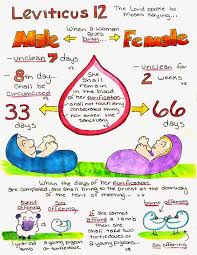 Leviticus 12
The Lord spoke to
Moses saying...
When a woman
gives
birth...
Male
Female
-unclean 7 days
8th day-
shall be
circumcised
33
days
She
shall
remain
in the blood
of her purification
shall not touch any
consecrated thing,
nor enter the
sanctuary
-unclean for
2 weeks
66
days
When the days of her purification
are completed, she shall bring to the priest at the doorway
of the tent of meeting...
burnt
offering
sin
offering
1 year old
lamb
a young pigeon
or turtledove
If she cannot
afford a lamb
she shall
then take two
turtledoves or
2 young pigeons
burnt
offering
Sin offering